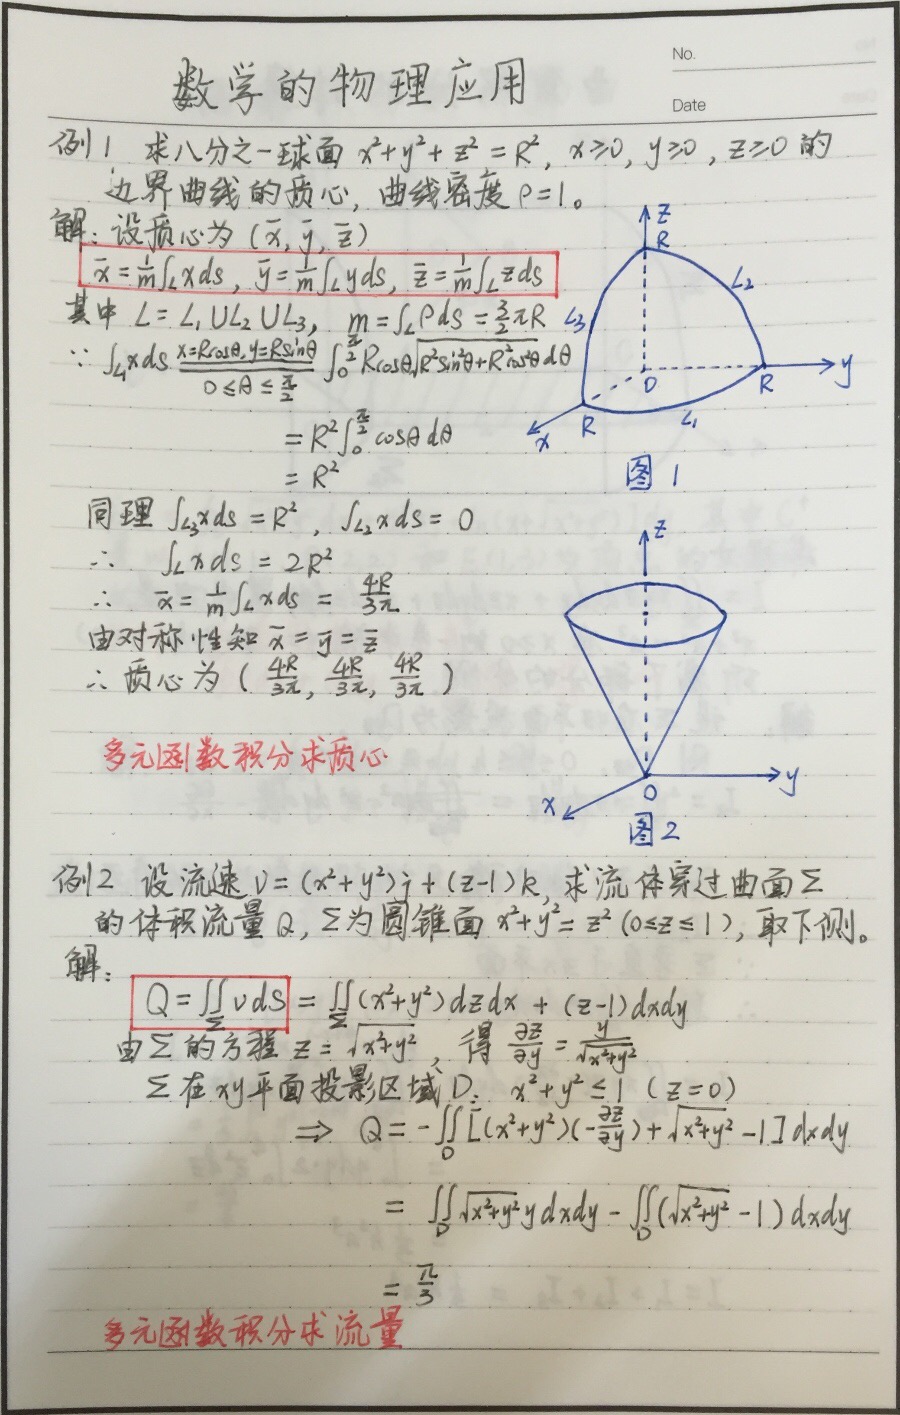 No.
数学的物理应用
Date
例1 求八分之一球面 x²+y²+z²=R², x≥0, y≥0, z≥0 的
边界曲线的质心, 曲线密度 ρ=1。
解: 设质心为 (x̄, ȳ, z̄)
x̄=1/m∫_L xds, ȳ=1/m∫_L yds, z̄=1/m∫_L zds
其中 L=L₁∪L₂∪L₃, m=∫_L ρds=3/2πR
∵ ∫_L₁ xds x=Rcosθ, y=Rsinθ 0≤θ≤π/2 ∫₀^(π/2) Rcosθ√(R²sin²θ+R²cos²θ) dθ
=R²∫₀^(π/2) cosθdθ
=R²
z
R
L₂
L₃
O
R
y
x
R
L₁
图1
同理 ∫_L₃ xds=R², ∫_L₂ xds=0
∴ ∫_L xds=2R²
∴ x̄=1/m∫_L xds=4R/3π
由对称性知 x̄=ȳ=z̄
∴ 质心为 (4R/3π, 4R/3π, 4R/3π)
多元函数积分求质心
z
y
O
x
图2
例2 设流速 v=(x²+y²)j+(z-1)k, 求流体穿过曲面Σ
的体积流量Q, Σ为圆锥面 x²+y²=z² (0≤z≤1), 取下侧。
解:
Q=∬_Σ vdS = ∬_Σ (x²+y²)dzdx+(z-1)dxdy
由Σ的方程 z=√(x²+y²), 得 ∂z/∂y=y/√(x²+y²)
Σ在xy平面投影区域D: x²+y²≤1 (z=0)
⇒ Q=-∬_D [(x²+y²)(-∂z/∂y)+√(x²+y²)-1]dxdy
=∬_D √(x²+y²) ydxdy-∬_D (√(x²+y²)-1)dxdy
=π/3
多元函数积分求流量